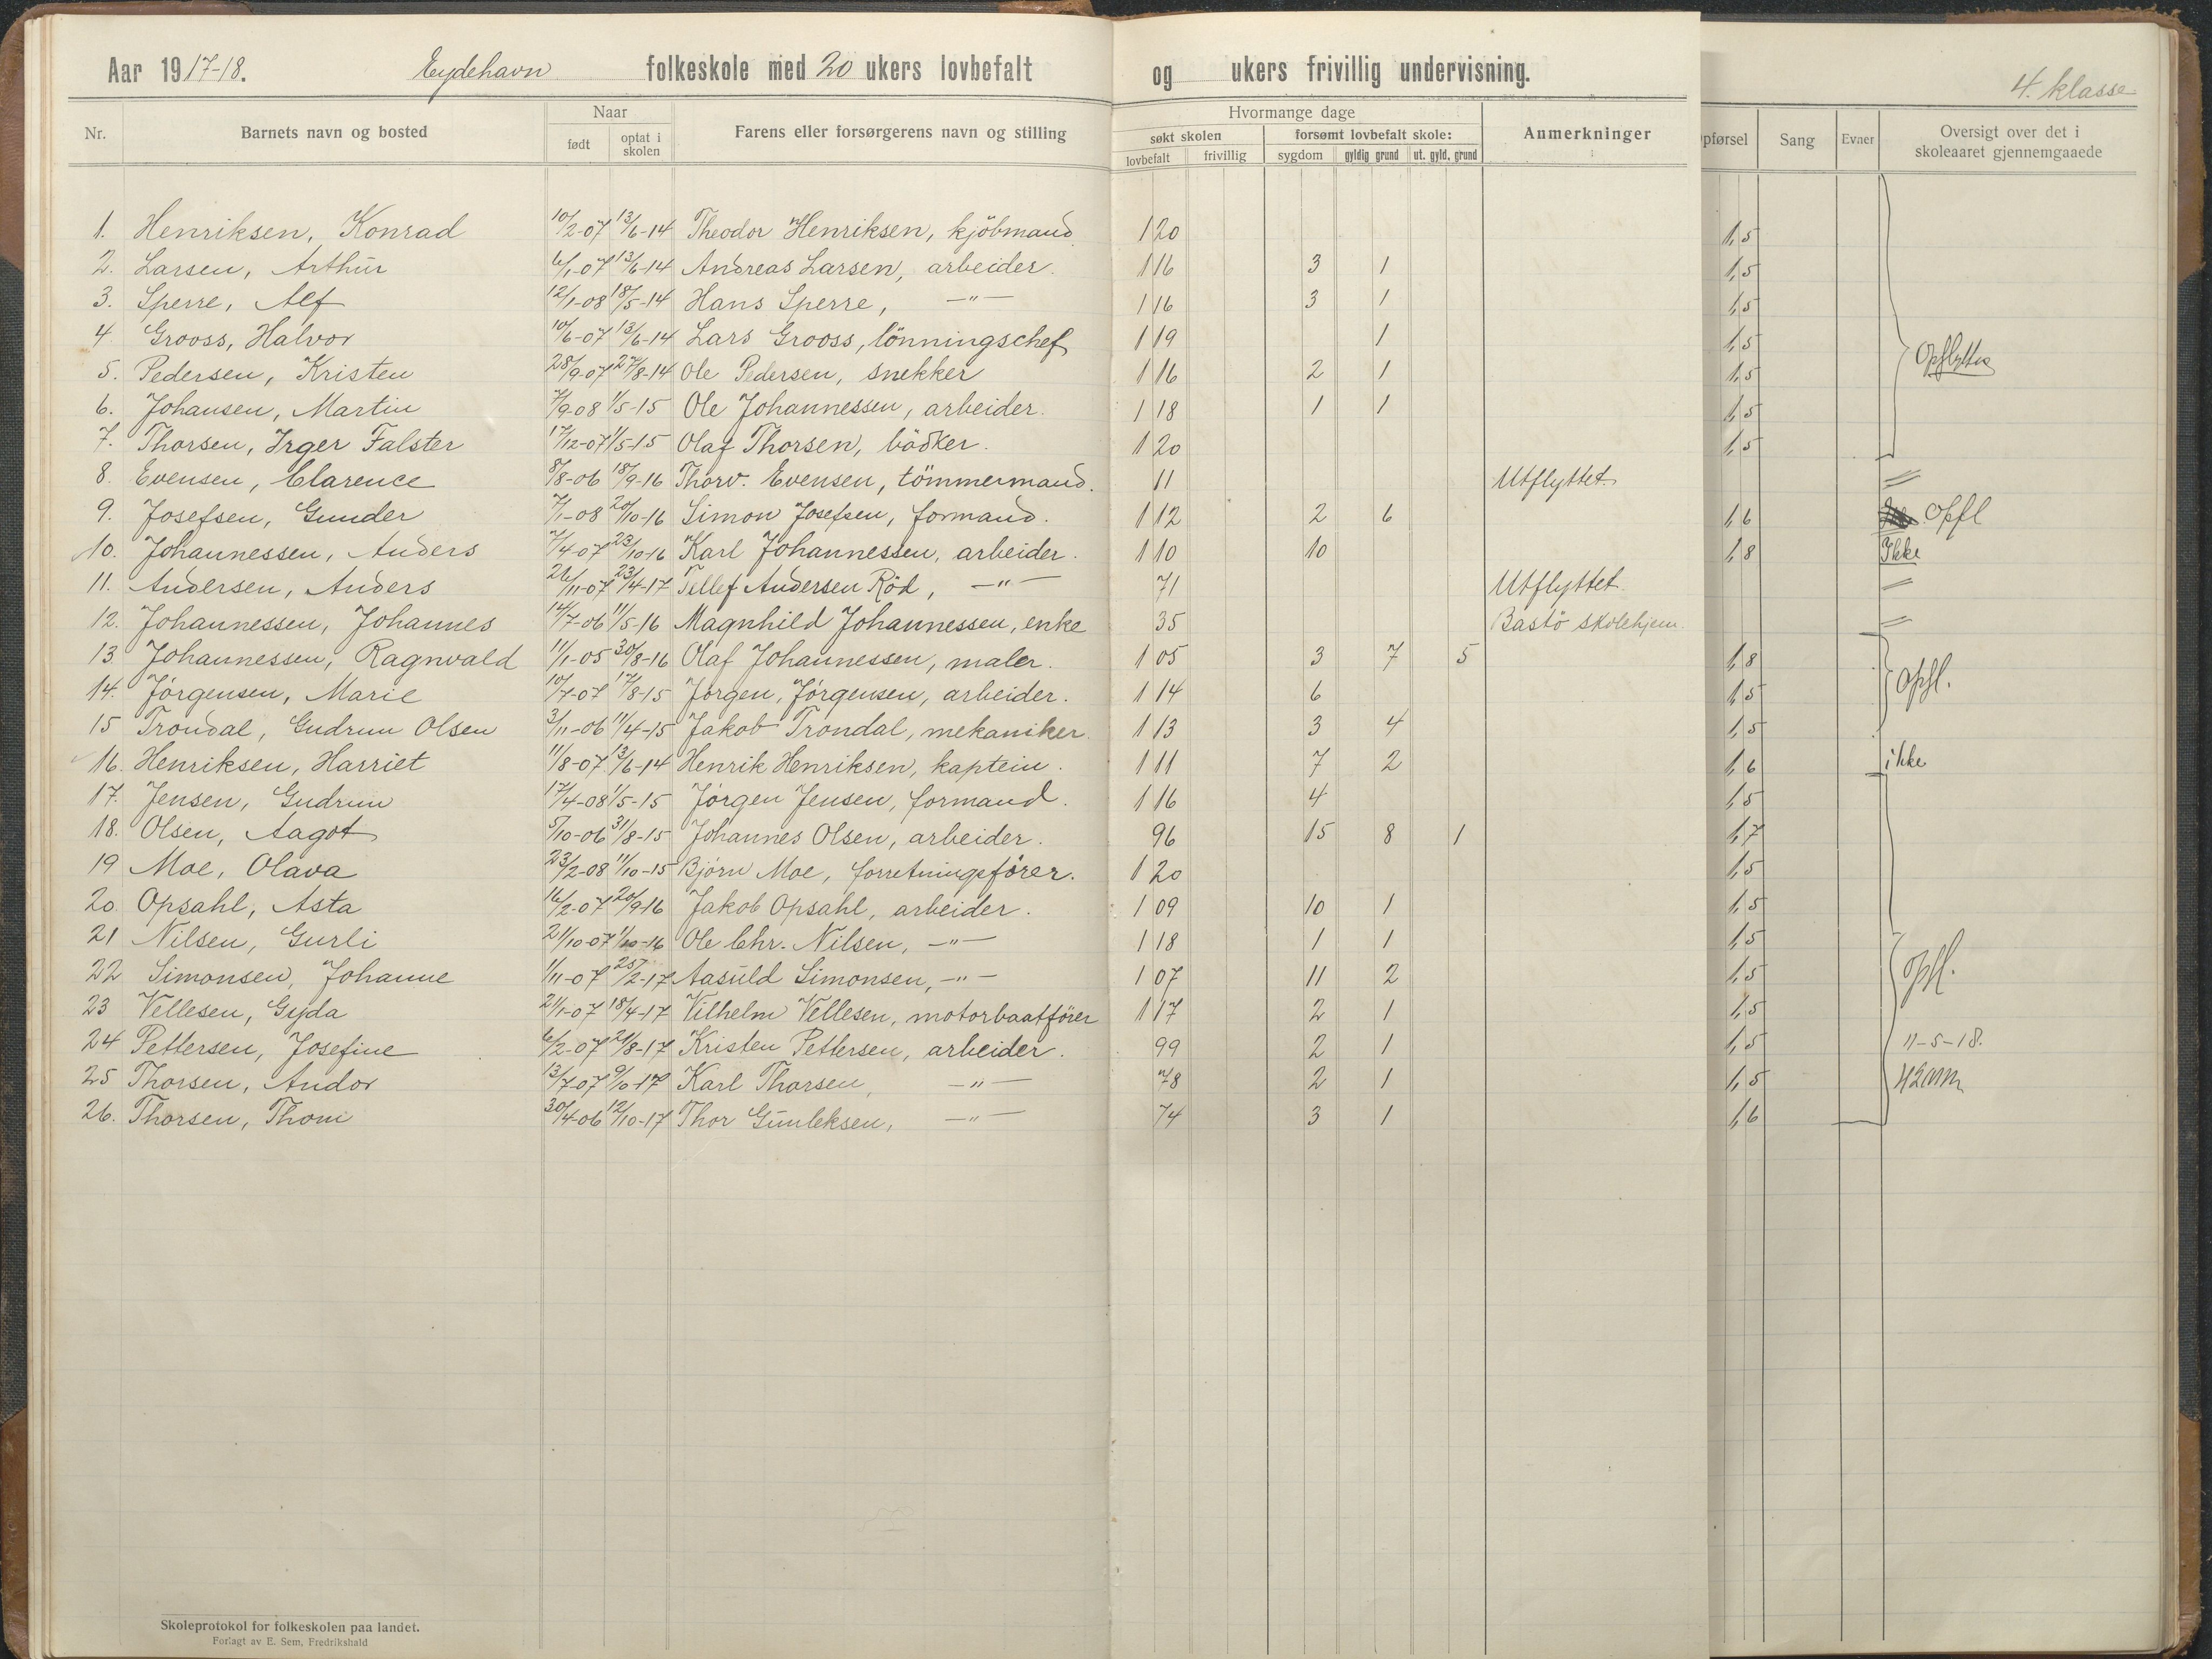 Aar 1917-18. Eydehavn folkeskole med 20 ukers lovbefalt og ukers frivillig undervisning.
4. klasse
Nr. Barnets navn og bosted Naar født optat i skolen Farens eller forsørgerens navn og stilling Hvormange dage søkt skolen lovbefalt frivillig forsømt lovbefalt skole: sygdom gyldig grund ut. gyld. grund Anmerkninger pførsel Sang Evner Oversigt over det i skoleaaret gjennemgaaede
1. Henriksen, Konrad 10/2-07 13/6-14 Theodor Henriksen, kjöbmand 120 1,5
2. Larsen, Arthur 6/1-07 13/6-14 Andreas Larsen, arbeider. 116 3 1 1,5
3. Sperre, Alf 12/1-08 18/5-14 Hans Sperre, —"— 116 3 1 1,5
4 Grooss, Halvor 10/6-07 13/6-14 Lars Grooss, lönningschef 119 1 1,5
Opflyttes
5. Pedersen, Kristen 28/9-07 27/8-14 Ole Pedersen, snekker 116 2 1 1,5
6. Johansen, Martin 7/9-08 1/5-15 Ole Johannessen, arbeider. 118 1 1 1,5
7. Thorsen, Irger Falster 17/12-07 1/5-15 Olaf Thorsen, bödker. 120 1,5
8. Evensen, Clarence 8/8-06 18/9-16 Thorv. Evensen, tömmermand. 11 Utflyttet. =
9. Josefsen, Gunder 7/1-08 20/10-16 Simon Josefsen, formand. 112 2 6 1,6 opfl
10. Johannessen, Anders 7/4-07 23/10-16 Karl Johannessen, arbeider. 110 10 1,8 Ikke
11. Andersen, Anders 26/11-07 23/4-17 Tellef Andersen Röd, —"— 71 Utflyttet =
12. Johannessen, Johannes 14/7-06 11/5-16 Magnhild Johannessen, enke 35 Bastö skolehjem. =
13 Johannessen, Ragnvald 11/1-05 30/8-16 Olaf Johannessen, maler. 105 3 7 5 1,8
14. Jörgensen, Marie 10/7-07 17/8-15 Jörgen, Jörgensen, arbeider. 114 6 1,5 opfl.
15 Trondal, Gudrun Olsen 3/11-06 11/4-15 Jakob Trondal, mekaniker. 113 3 4 1,5
16. Henriksen, Harriet 11/8-07 13/6-14 Henrik Henriksen, kaptein. 111 7 2 1,6 ikke
17. Jensen, Gudrun 17/4-08 1/5-15 Jörgen Jensen, formand. 116 4 1,5
18. Olsen, Aagot 5/10-06 31/8-15 Johannes Olsen, arbeider. 96 15 8 1 1,7
19 Moe, Olava 23/2-08 11/10-15 Bjørn Moe, forretningsfører. 120 1,5
20 Opsahl, Asta 16/2-07 20/9-16 Jakob Opsahl, arbeider. 109 10 1 1,5
21 Nilsen, Gurli 21/10-07 1/10-16 Ole Chr. Nilsen, —"— 118 1 1 1,5
22 Simonsen, Johanne 1/11-07 25/2-17 Aasuld Simonsen, —"— 107 11 2 1,5 opfl.
23 Vellesen, Gyda 21/1-07 18/4-17 Vilhelm Vellesen, motorbaatförer 117 2 1 1,5
24 Pettersen, Josefine 6/2-07 21/8-17 Kristen Pettersen, arbeider. 99 2 1 1,5 11-5-18.
25 Thorsen, Andor 13/7-07 9/10-17 Karl Thorsen, —"— 78 2 1 1,5
26. Thorsen, Thom 30/4-06 12/10-17 Thor Gunleksen, —"— 74 3 1 1,6
Skoleprotokol for folkeskolen paa landet.
Forlagt av E. Sem, Fredrikshald